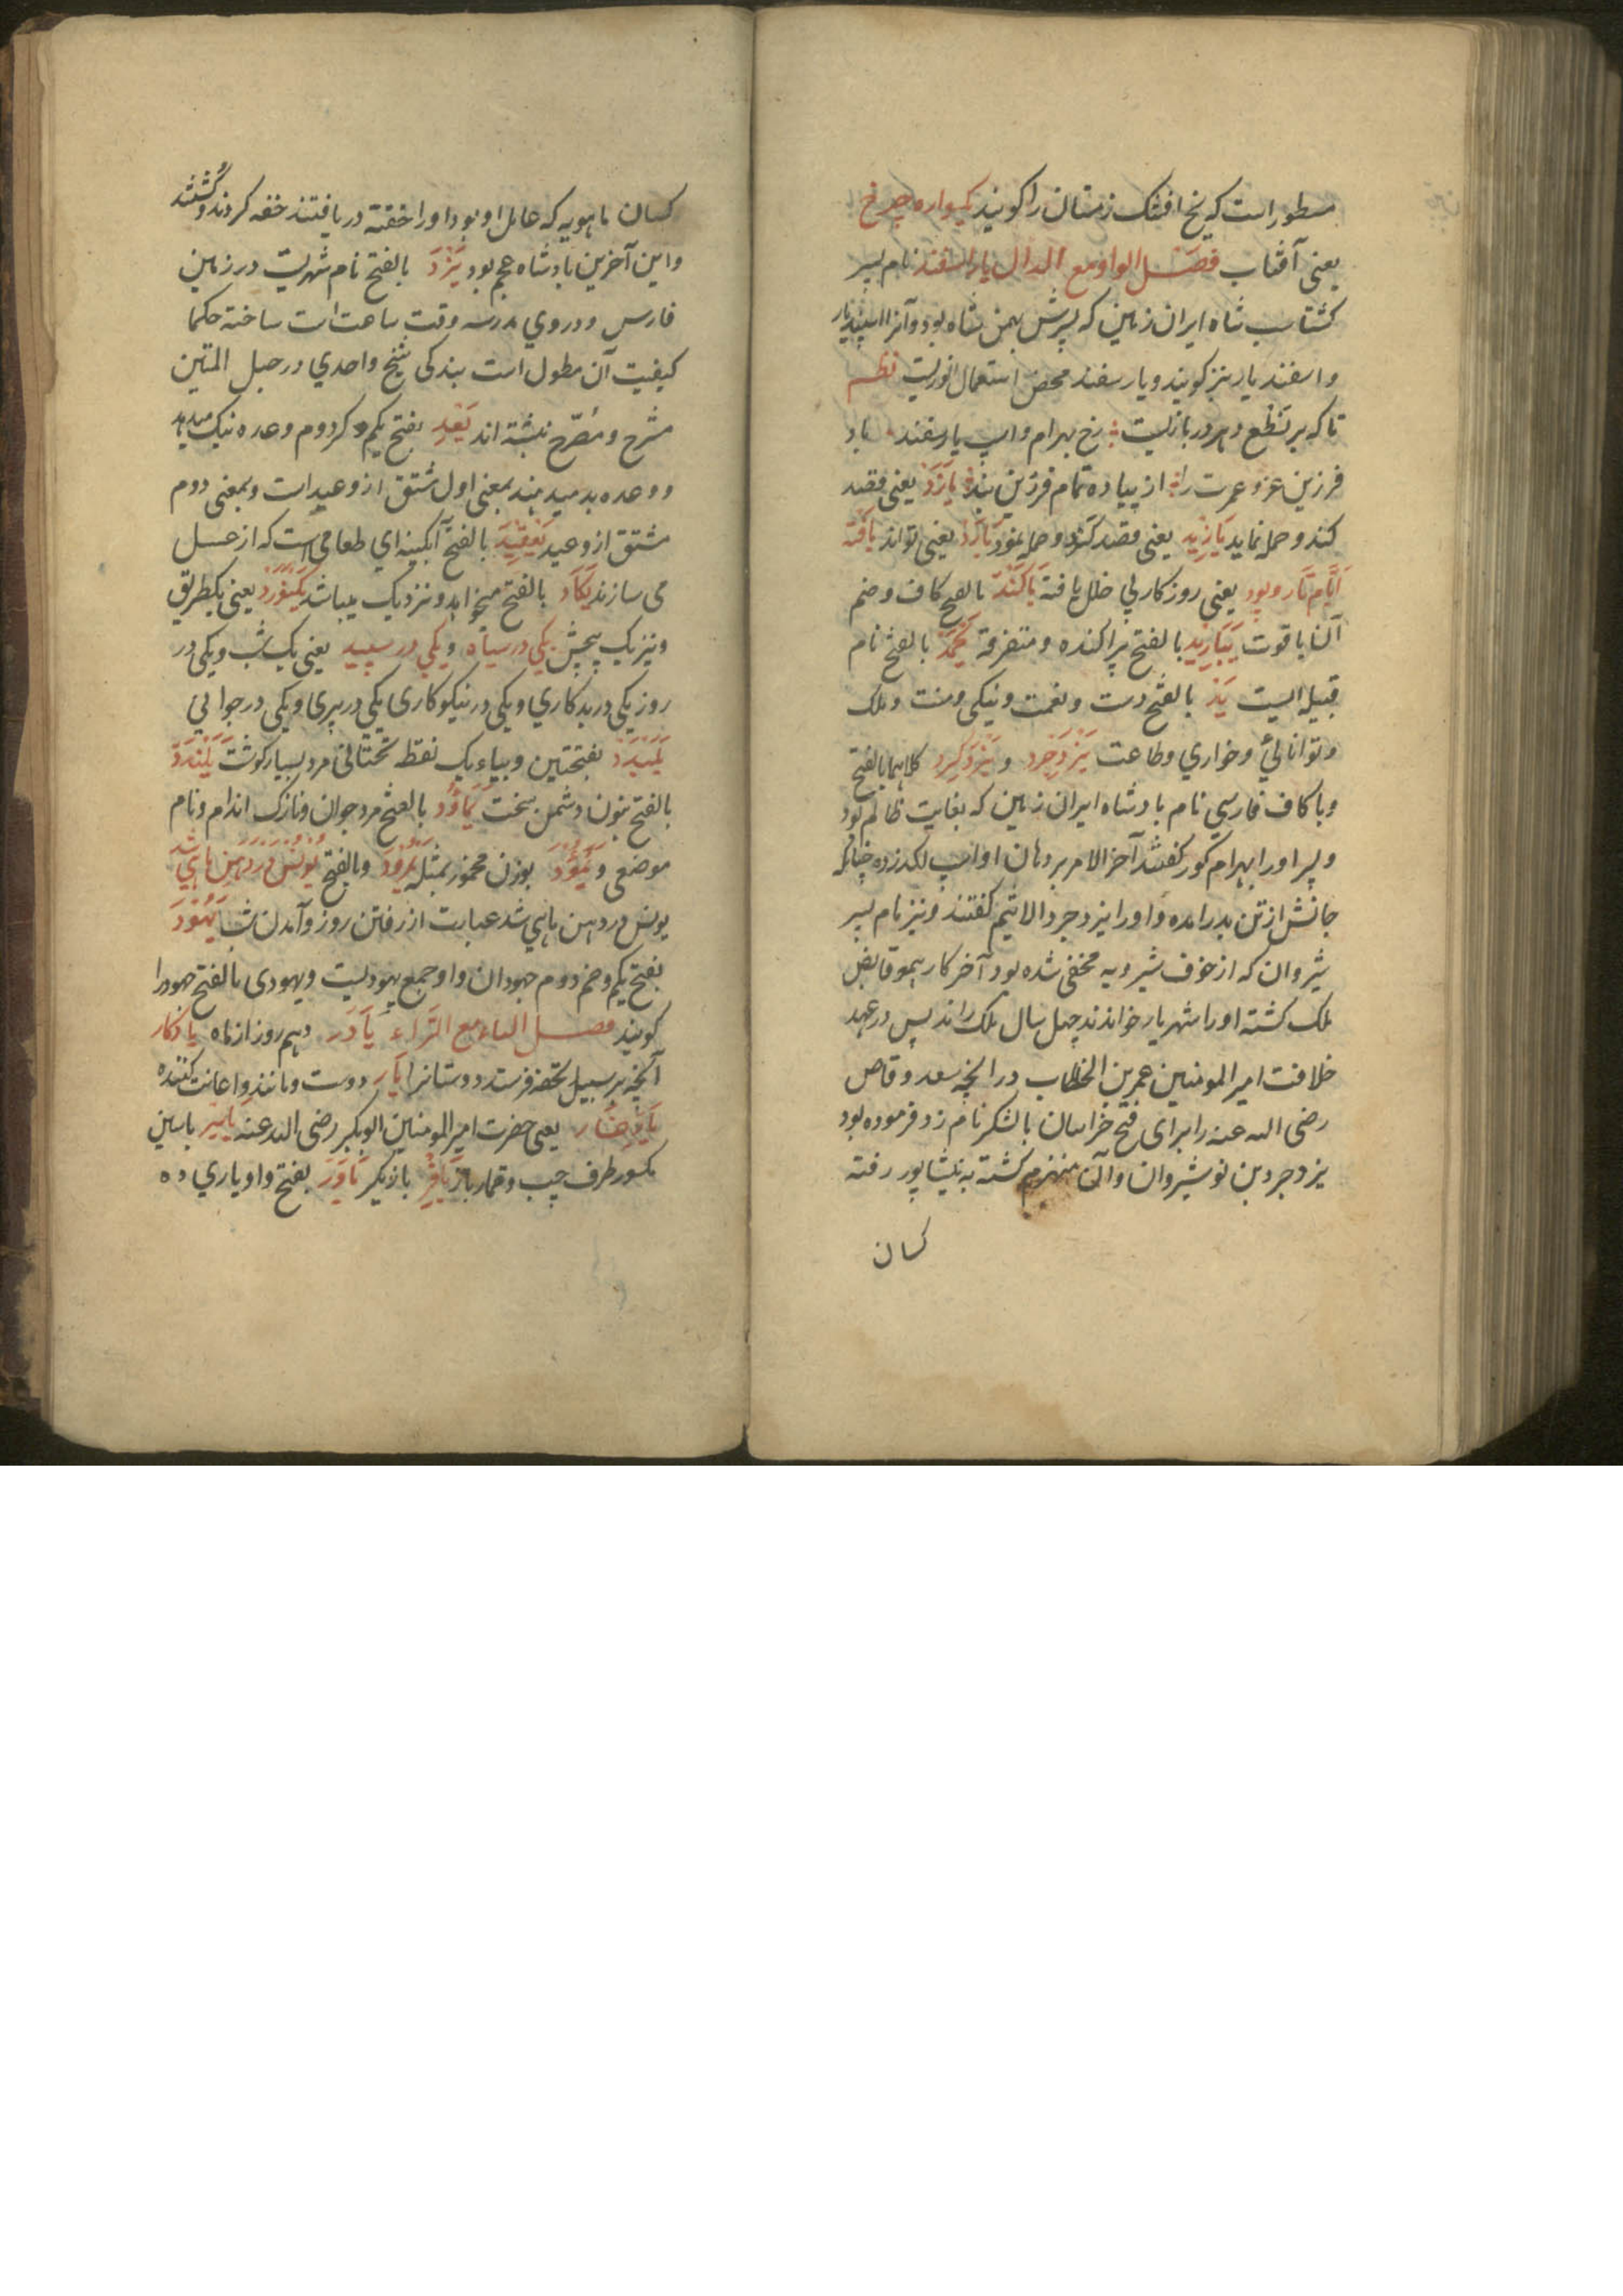 مسطور است که یخ افشک زمستان را کویند کهواره چرخ
یعنی آفتاب فصل الواو مع الدال یار اسفند نام پسر
کشتاسب شاه ایران زمین که پسرش بهمن شاه بود و آنرا اسپندیار
و اسفندیار نیز کویند و یار سفند محض استعمال انوریست نظم
تا که بر نطع دهر در بازیست رخ بهرام و اسپ یار سفند باد
فرزین عز و عمرت را از پیاده تمام فرزین بند یازَد یعنی قصد
کند و حمله نماید یازید یعنی قصد کند و حمله نمود یارد یعنی تواند یافته
ایام تار و پود یعنی روزکار بی خلل یافته یاکند بالفتح کاف و ضم
آن یاقوت یباریِد بالفتح پراکنده و متفرقه یحمد بالفتح نام
قبیله ایست ید بالفتح دست و نعمت و نیکی و منت و ملک
و توانائی و خواری و طاعت یزدجرد و یزدکرد کلاهما بالفتح
و با کاف فارسی نام بادشاه ایران زمین که بغایت ظالم بود
و پسر او را بهرام کور کفتند آخر الامر بر دهان او اسپ لکد زده چنانکه
جانش از تن بدر امده و او را یزدجرد الاثیم کفتند و نیز نام پسر
شیروان که از خوف شیرویه مخفی شده بود آخر کار همو قابض
ملک کشته او را شهریار خواندند چهل سال ملک راند پس در عهد
خلافت امیر المومنین عمر بن الخطاب در انچه سعد وقاص
رضی الله عنه را برای فتح خراسان با لشکر نام زد فرموده بود
یزدجرد بن نوشیروان و آلان منهزم کشته به نیشاپور رفته
کسان
کسان ماهویه که عامل او بود او را خفته دریافتند خفه کردند و کشتند
و این آخرین بادشاه عجم بود یَزد بالفتح نام شهریست در زمین
فارس و در وی مدرسه وقت ساعت است ساخته حکما
کیفیت آن مطول است بندکی شیخ واحدی در حبل المتین
مشرح و مصرح نبشته اند یَعِد بفتح یکم و کر دوم وعده نیک میدهد
و وعده بد میدهند بمعنی اول مشتق از وعید است و بمعنی دوم
مشتق از وعید یَعقید بالفتح آبکینه ای طعامی است که از عسل
می سازند یَکاد بالفتح میخواهد و نزدیک میباشد یکنورد یعنی یکطریق
و نیز یک پیچش یکی در سیاه و یکی در سپید یعنی یک شب و یکی در
روز یکی در بدکاری و یکی در نیکوکاری یکی در پیری و یکی در جوانی
یَلَندد بفتحتین و بیاء یک نقطه تحتانی مرد بسیار کوشت یَلَندد
بالفتح بنون دشمن سخت یماود بالفتح مرد جوان و نازک اندام و نام
موضعی و یمود بوزن محمود بمثله یمرود و بالفتح یونس در دهن ماهی شد
یونس در دهن ماهی شد عبارت از رفتن روز و آمدن شب یَهُود
بفتح یکم و ضم دوم جهودان و او جمع یهودیست و یهودی بالفتح جهود را
کویند فصل الیاء مع الراء یآدر دهم روز از ماه یادکار
آنچه بر سبیل تحفه فرستد دوستانرا یار دوست و مانند و اعانت کننده
یار غار یعنی حضرت امیر المومنین ابوبکر رضی الله عنه یاسر باسین
مکسور طرف چپ و قمار باز یافر بازیکر یاور بفتح واو یاری ده